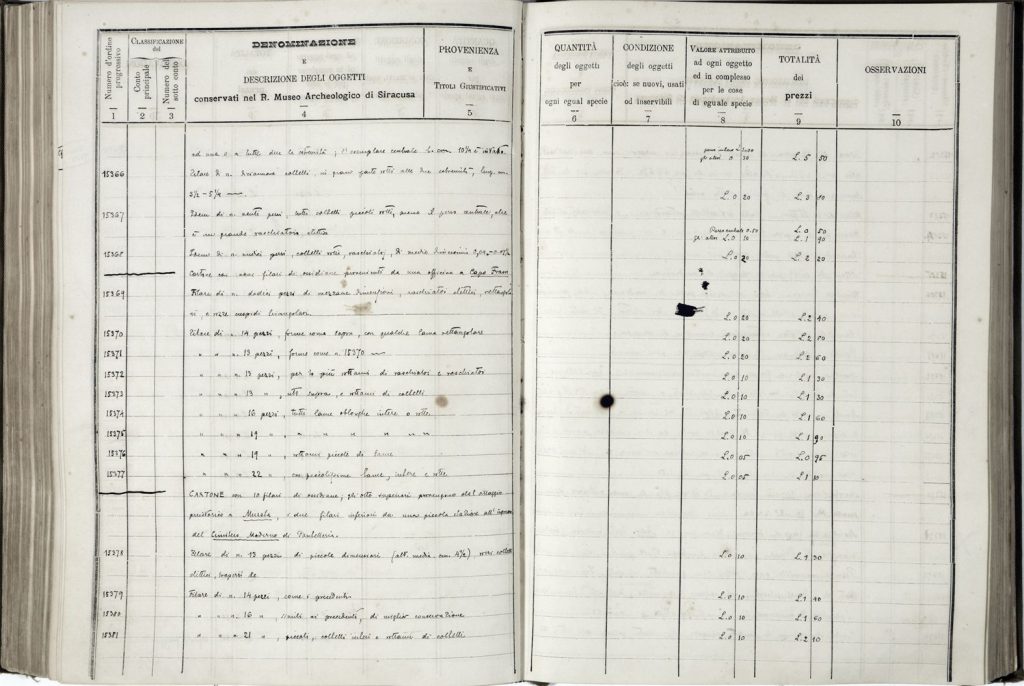 Numero d'ordine progressivo
CLASSIFICAZIONE del
Conto principale
Numero del sotto conto
DENOMINAZIONE
E
DESCRIZIONE DEGLI OGGETTI
conservati nel R. Museo Archeologico di Siracusa
PROVENIENZA
E
TITOLI GIUSTIFICATIVI
1 2 3 4 5
ad una o a tutte due le estremità; l'esemplare centrale
15366 Filare di n. coltelli, in gran parte rotti alle due estremità, lung. cm.
3½ - 5¼
15367 Idem di n. venti pezzi, tutti coltelli piccoli rotti, meno il pezzo centrale, che
è un grande raschiatoio elittico
15368 Idem di n. undici pezzi, coltelli rotti, raschiatoi, di medie dimensioni
Cartone con nove filari di ossidiane provenienti da una officina a Capo Fram
15369 Filare di n. dodici pezzi di mezzane dimensioni, raschiatoi elittici, rettangola
ri, e rozze cuspidi triangolari.
15370 Filare di n. 14 pezzi, forme come sopra, con qualche lama rettangolare
15371 " " n. 13 pezzi, forme come n. 15370
15372 " " n. 13 pezzi, per lo più rottami di raschiatoi e raschiatoi
15373 " " n. 13 " , uti supra, e rottami di coltelli
15374 " " n. 16 pezzi, tutte lame oblunghe intere o rotte
15375 " " n. 19 " , " " " " "
15376 " " n. 19 " , rottami piccole di lame
15377 " " n. 22 " , con piccolissime lame, intere e rotte
CARTONE con 10 filari di ossidiane, gli otto superiori provengono dal villaggio
preistorico a Mursia, i due filari inferiori da una piccola stazione all'
del Cimitero Moderno di Pantelleria.
15378 Filare di n. 13 pezzi di piccole dimensioni (alt. media cm. 4½) rozzi coltelli
elittici,
15379 Filare di n. 14 pezzi, come i precedenti
15380 " " n. 16 " , simili ai precedenti, di miglior conservazione
15381 " " n. 21 " , piccoli, coltelli interi e rottami di coltelli
QUANTITÀ
degli oggetti
per
ogni egual specie
CONDIZIONE
degli oggetti
cioè: se nuovi, usati
od inservibili
VALORE ATTRIBUITO
ad ogni oggetto
ed in complesso
per le cose
di eguale specie
TOTALITÀ
dei
prezzi
OSSERVAZIONI
6 7 8 9 10
gli altri 0 30 L. 5 50
L. 0 20 L. 3 10
Pezzo centrale 0.50 L. 0 50
gli altri L. 0 10 L. 1 90
L. 0 20 L. 2 20
L. 0 20 L. 2 40
L. 0 20 L. 2 80
L. 0 20 L. 2 60
L. 0 10 L. 1 30
L. 0 10 L. 1 30
L. 0 10 L. 1 60
L. 0 10 L. 1 90
L. 0 05 L. 0 95
L. 0 05 L. 1 10
L. 0 10 L. 1 30
L. 0 10 L. 1 40
L. 0 10 L. 1 60
L. 0 10 L. 2 10